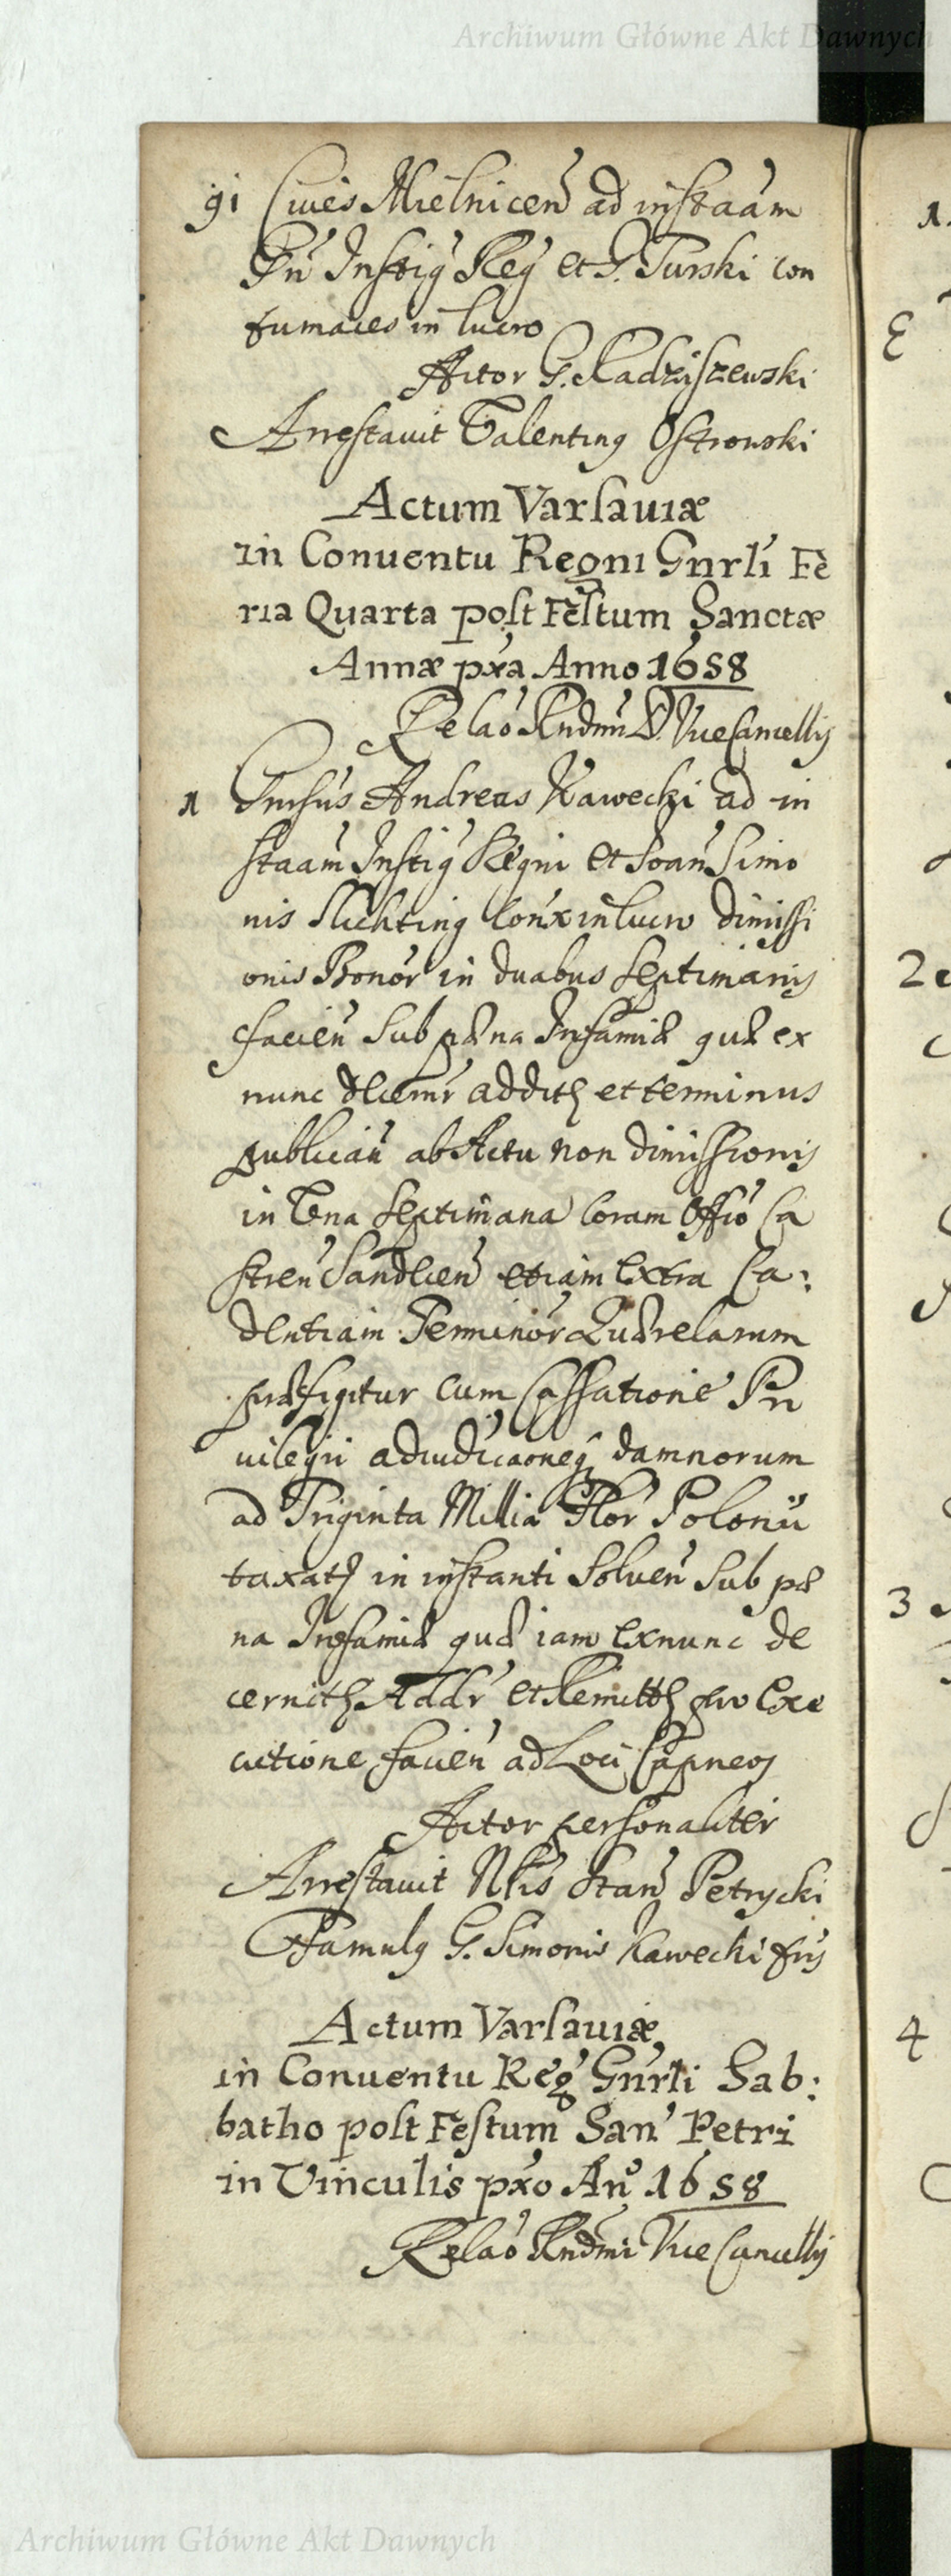 Archiwum Główne Akt Dawnych
91 Ciues Mielnicen ad instaam
Gn Instig Reg et G. Turski con
tumaces in lucro
Actor G. Radziszewski
Arrestauit Valentinq Ostrowski
Actum Varsauiæ
in Conuentu Regni Gnrli Fe
ria Quarta post Festum Sanctæ
Annæ pxa Anno 1658
Relao Rndmi D. Vice Cancellij
1 Gnrsus Andreas Kawecki ad in
staam Instig Regni et Joan Simo
nis Slichting Conx in lucro dimissi
onis Bonor in duabus septimanis
facien sub pæna Infamiæ quæ ex
nunc dlcernr additq et terminus
publican ab Actu non dimissionis
in Vna septimana Coram Offio Ca
stren Sandlien etiam Extra Ca:
dentiam Terminor Quærelarum
præfigitur cum Cassatione Pri
uilegii adiudicaoneq damnorum
ad Triginta Millia Flor Polonii
taxatq in instanti soluen sub pæ
na Infamiæ quæ iam Exnunc de
cernitq Addr et Remittq pro Exe
cutione facien ad Loci Capneos
Actor personaliter
Arrestauit Nlis Stan Petrycki
Famulq G. Simonis Kawecki fris
Actum Varsauiæ
in Conuentu Reg Gnrli Sab:
batho post Festum San Petri
in Vinculis pxo Ano 1658
Relao Rndmi Vice Cancellij
1.
2
3
4
Archiwum Główne Akt Dawnych